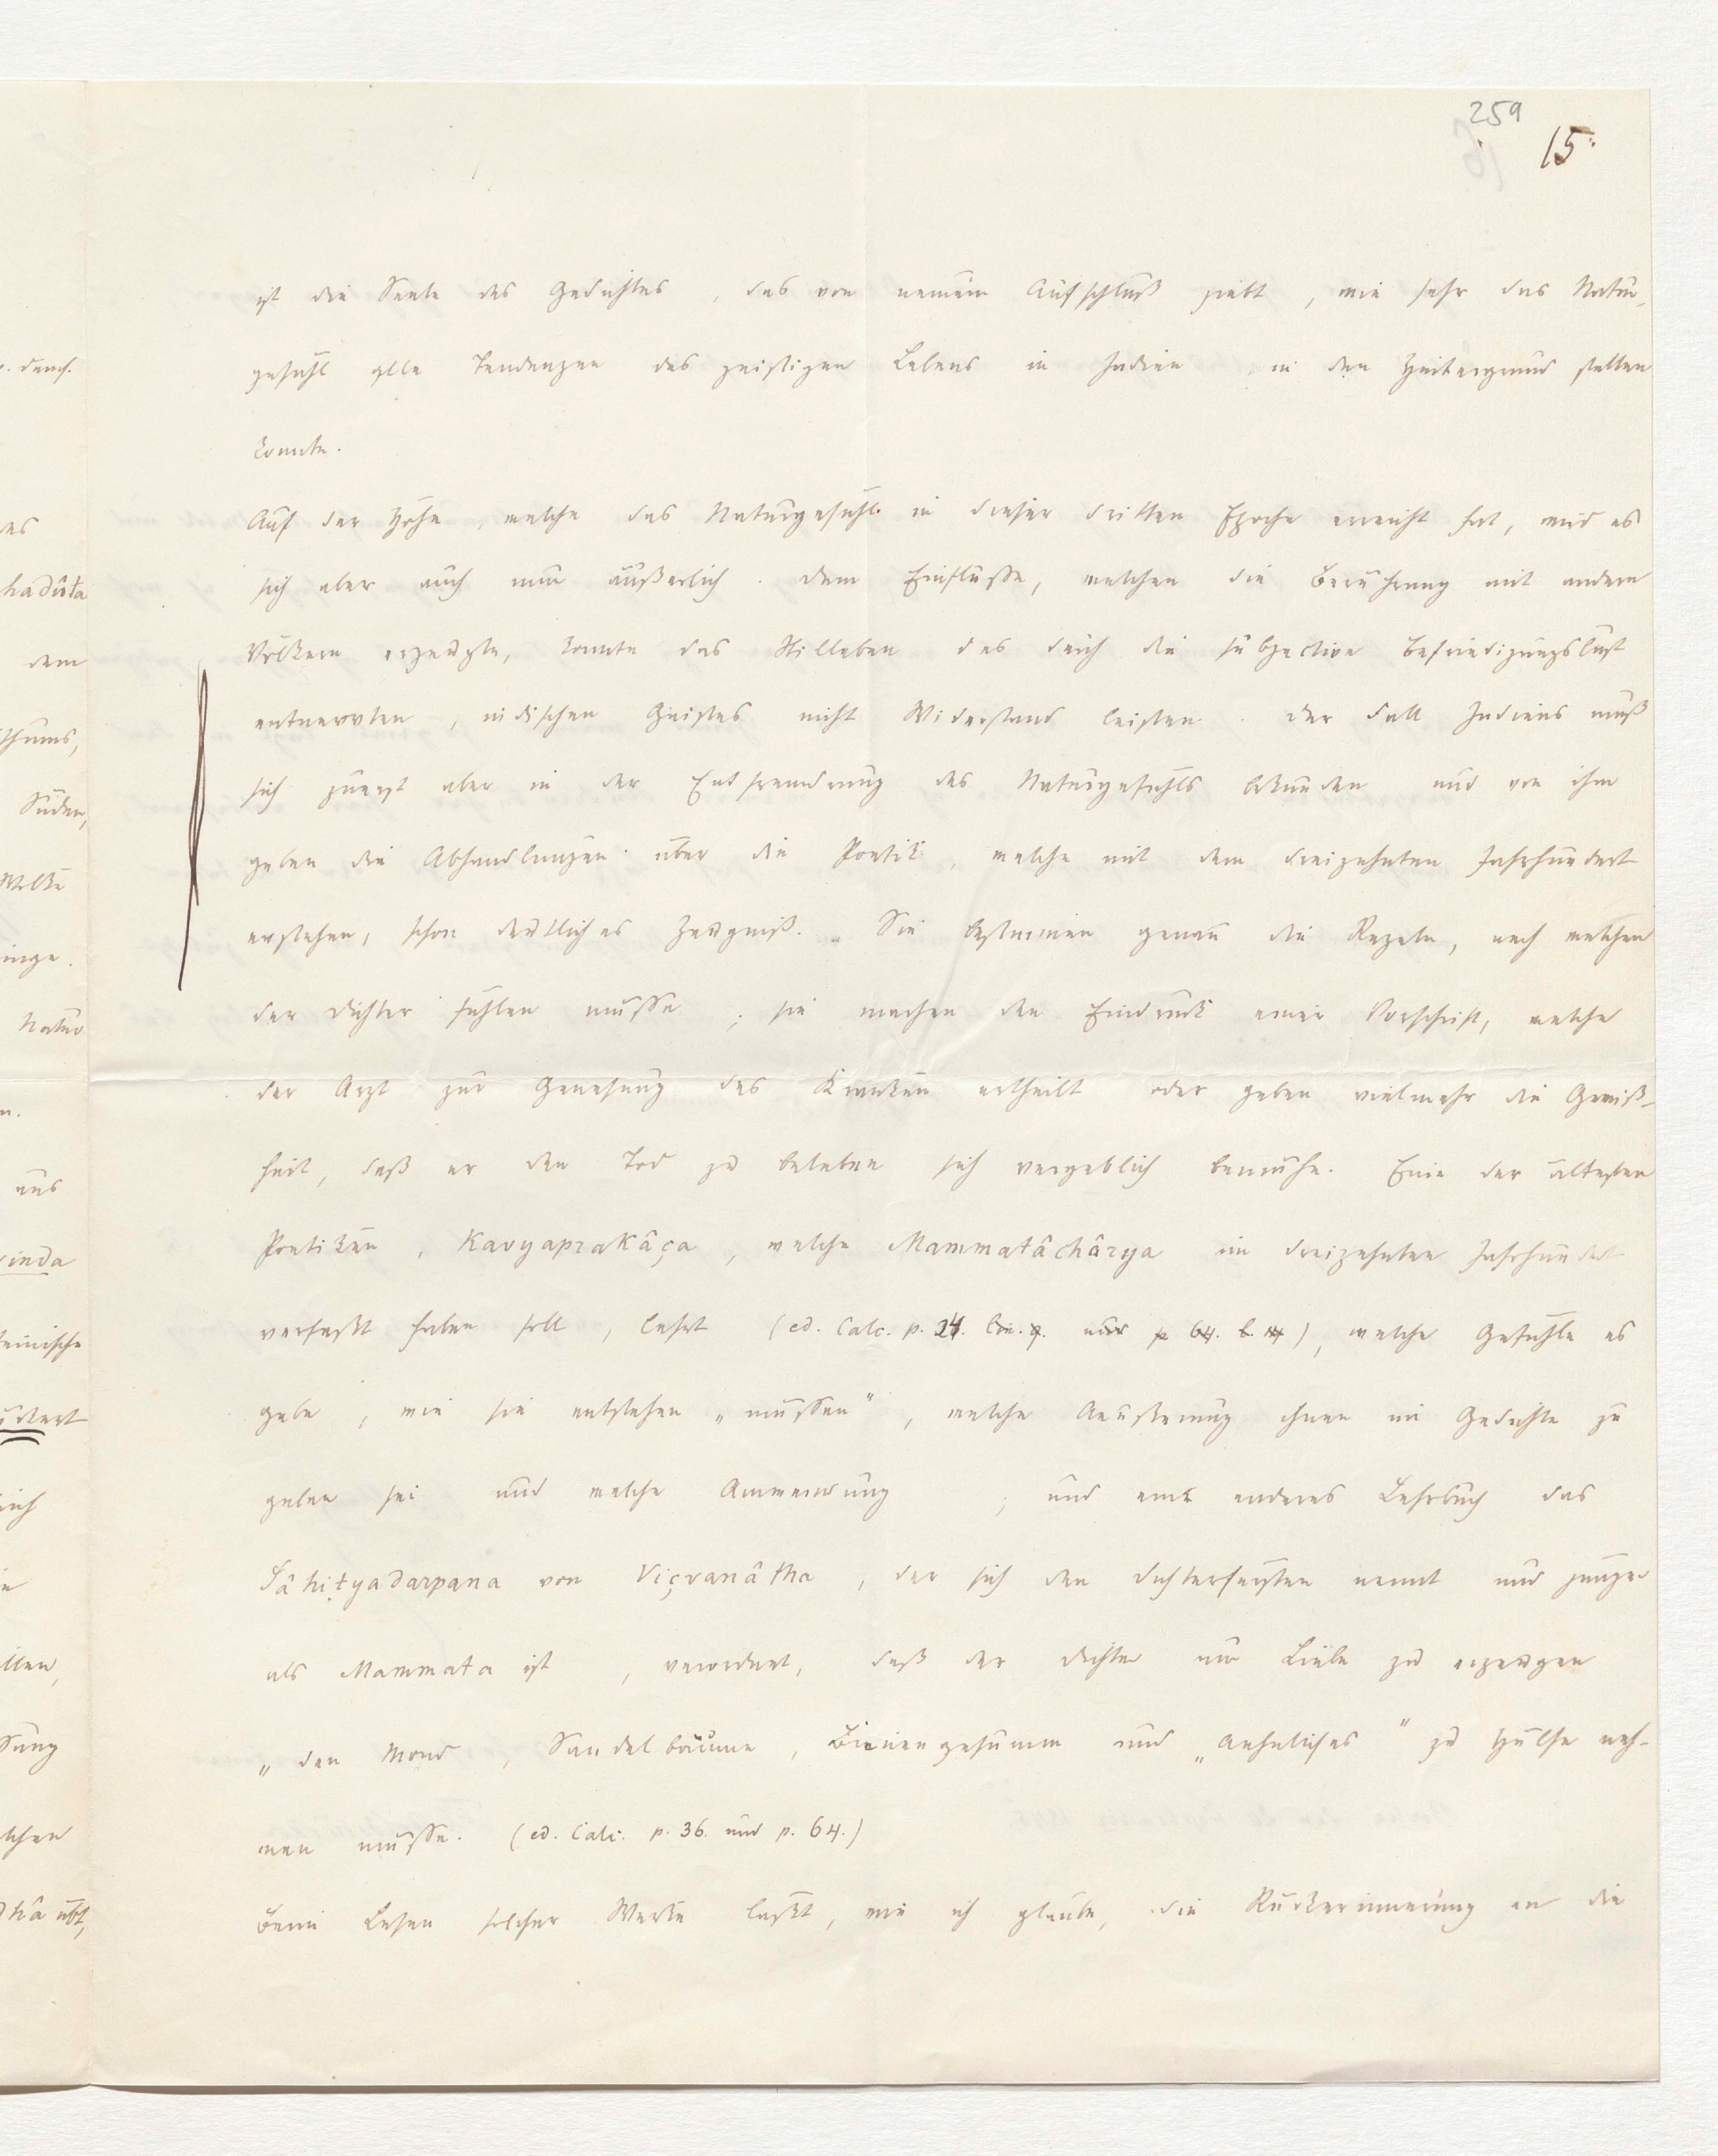 259
15.
ist die Seele des Gedichtes, das von neuem Aufschluß giebt, wie sehr das Natur-
gefühl alle Tendenzen des geistigen Lebens in Indien in den Hintergrund stellen
konnte.
Auf der Höhe, welche das Naturgefühl in dieser dritten Epoche erreicht hat, wird es
sich aber auch nun äußerlich. Dem Einflusse, welchen die Berührung mit andern
Völkern erzeugte, konnte das Stilleben des durch die subjective Befriedigungslust
entnervten, indischen Geistes nicht Widerstand leisten. Der Fall Indiens muß
sich zuerst aber in der Entfremdung des Naturgefühls bekunden und von ihm
geben die Abhandlungen über die Poetik, welche mit dem dreizehnten Jahrhundert
erstehen, schon deutliches Zeugniß. Sie bestimmen genau die Regeln, nach welchen
der Dichter fühlen müsse; sie machen den Eindruck einer Vorschrift, welche
der Arzt zur Genesung des Kranken ertheilt oder geben vielmehr die Gewiß-
heit, daß er den Tod zu beleben sich vergeblich bemühe. Eine der ältesten
Poetiken, Kavyaprakâça, welche Mammatâchârya im dreizehnten Jahrhundert
verfaßt haben soll, lehrt (ed. Calc. p. 24. lin. 9. und p 64. l. 14), welche Gefühle es
gebe, wie sie entstehen „müssen“, welche Aeußerung ihnen im Gedichte zu
geben sei und welche Anwendung; und ein anderes Lehrbuch das
Sâhityadarpana von Viçvanâtha, der sich den Dichterfürsten nennt und jünger
als Mammata ist, verordnet, daß der Dichter um Liebe zu erzeugen
„den Mond, Sandelbäume, Bienengesumm und „Aehnliches“ zu Hülfe neh-
men müsse. (ed. Calc. p. 36. und p. 64.)
Beim Lesen solcher Werke läßt, wie ich glaube, die Rückerinnerung an die